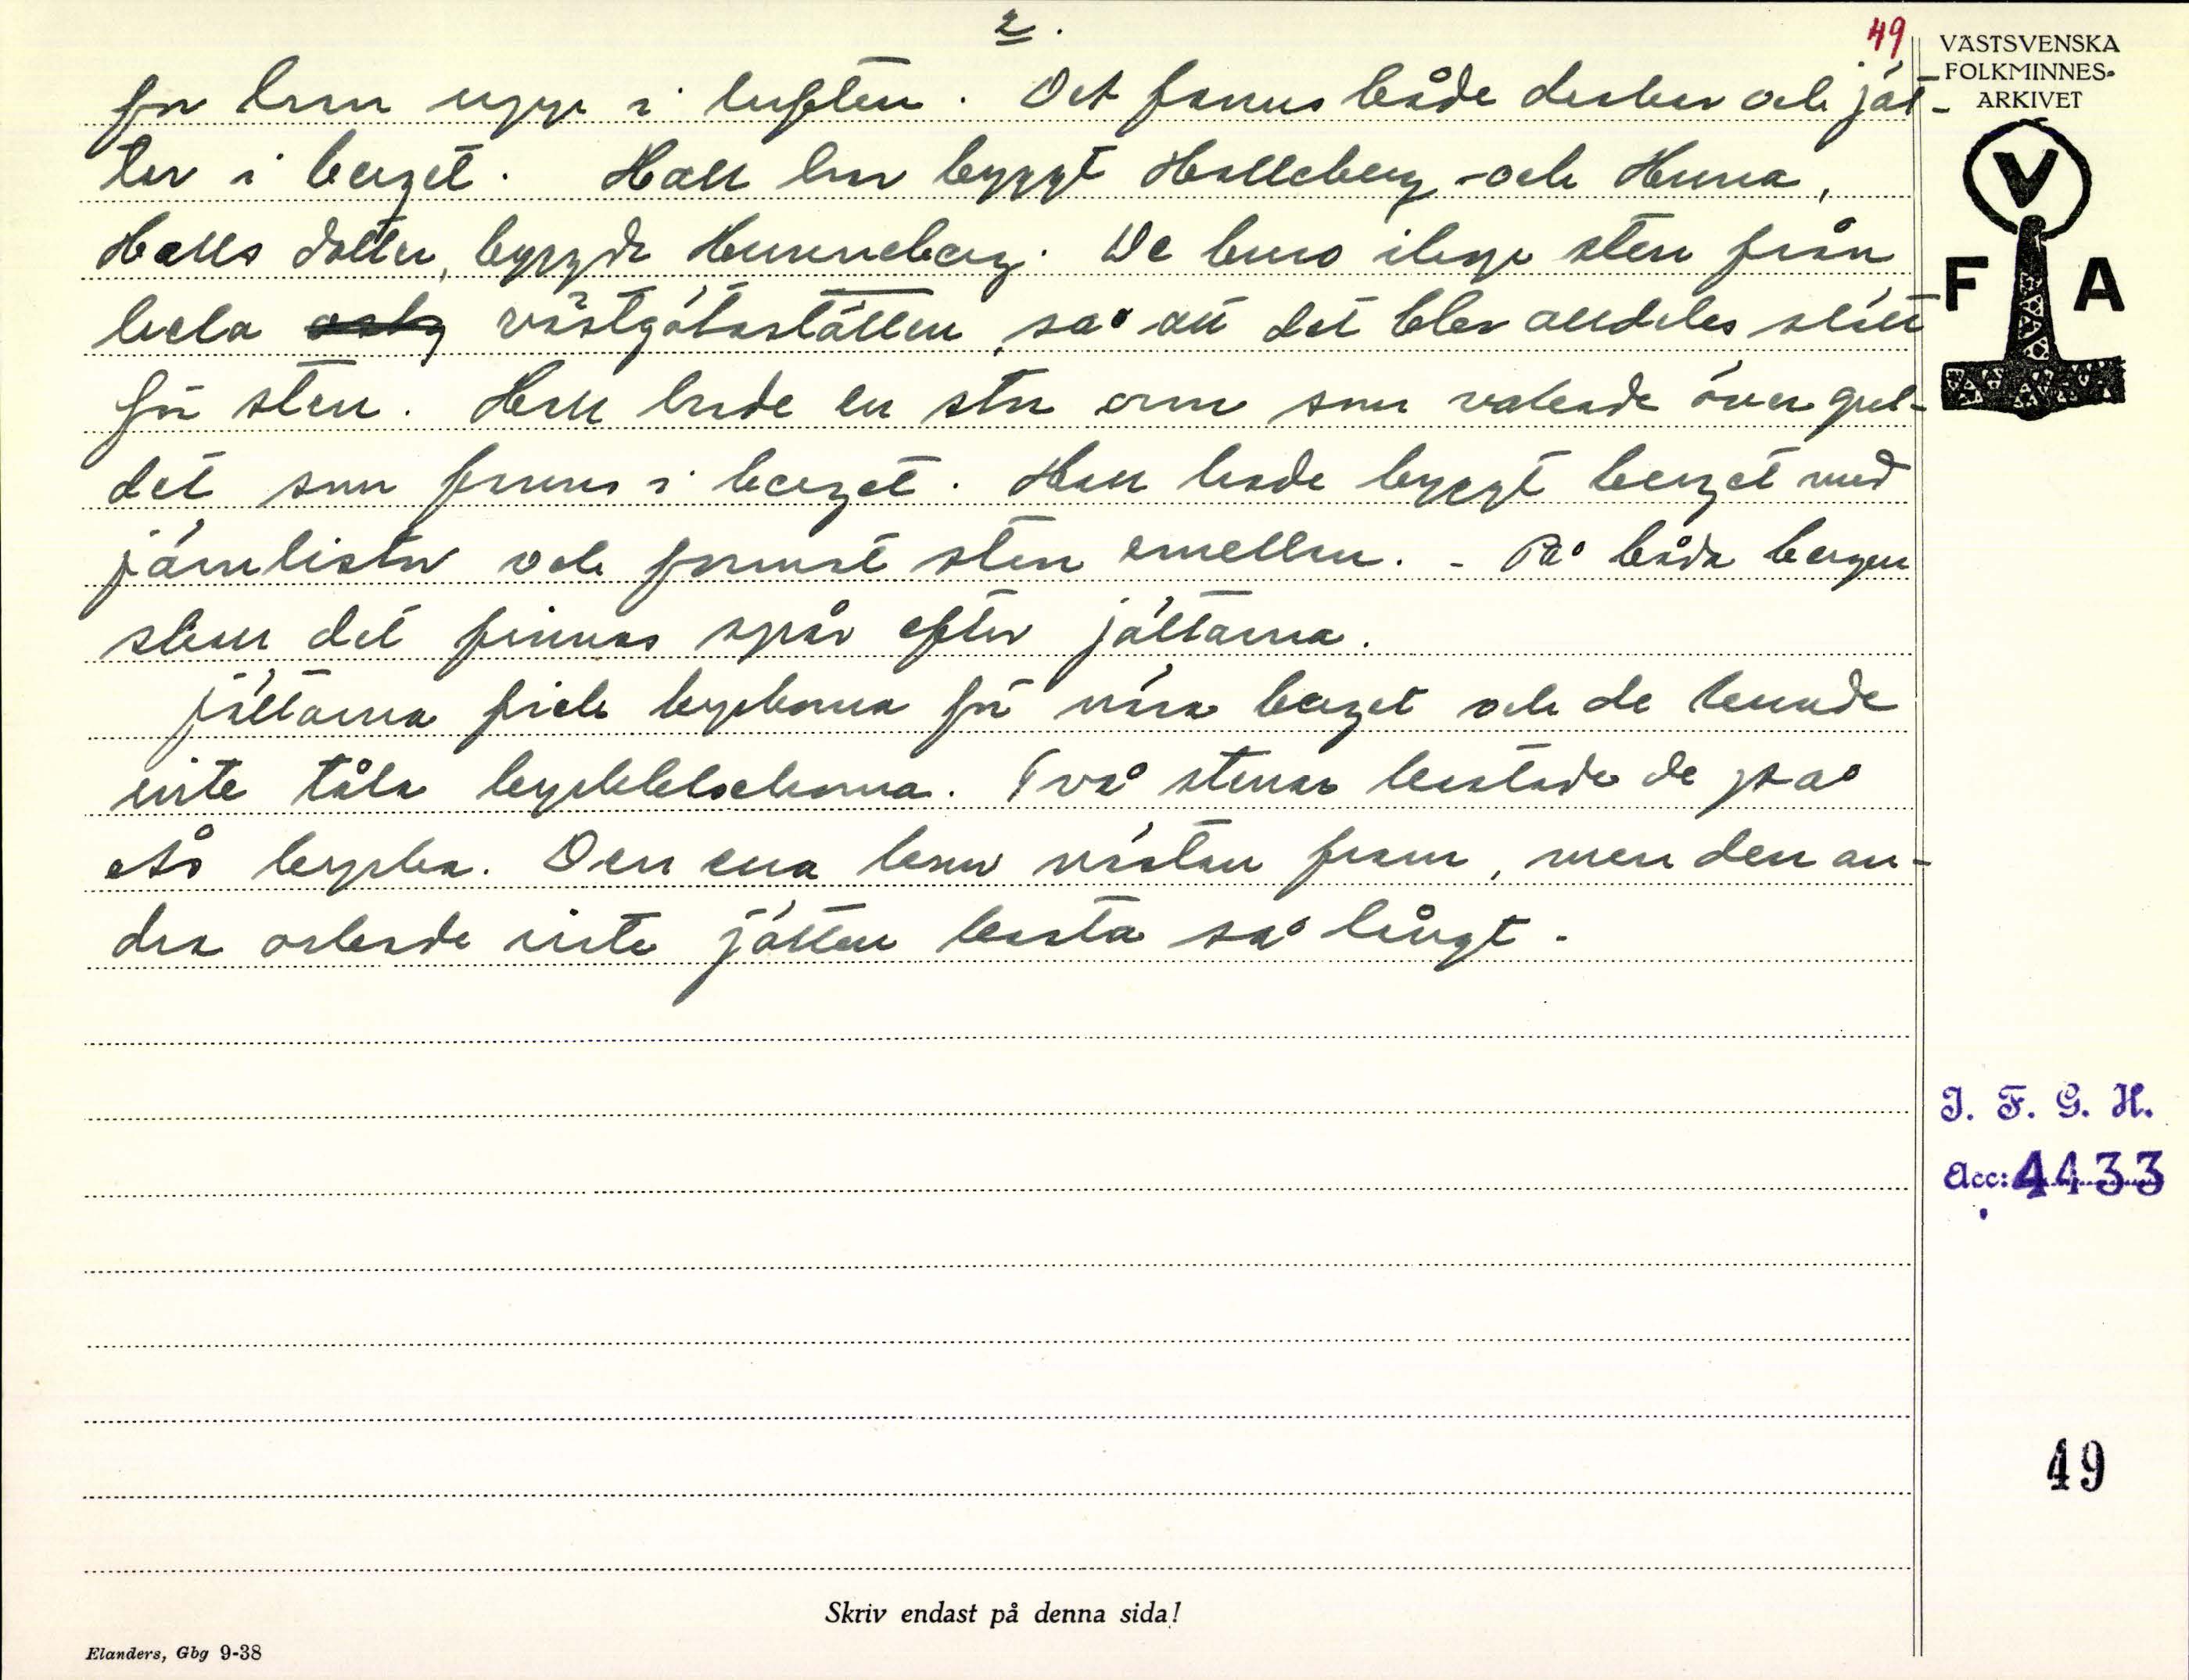 2.
49
for han upp i luften. Det fanns både drakar och jät-
tar i berget. Hall har byggt Halleberg och Hunna,
Halls dotter, byggde Hunneberg. De buro ihop sten från
hela västgötaslätten, så att det blev alldeles slätt
för sten. Hall hade en stor orm som vakade över gul-
det som fanns i berget. Hall hade byggt berget med
järnlister och format sten emellan. - På båda bergen
skall det finnas spår efter jättarna.
Jättarna fick kyrkorna för nära berget och de kunde
inte tåla kyrkklockorna. Två stenar kastade de på
Ås kyrka. Den ena kom nästan fram, men den an-
dra orkade inte jätten kasta så långt.
VÄSTSVENSKA
FOLKMINNES-
ARKIVET
V
F A
I. F. G. H.
Acc: 4433
49
Skriv endast på denna sida!
Elanders, Gbg 9-38